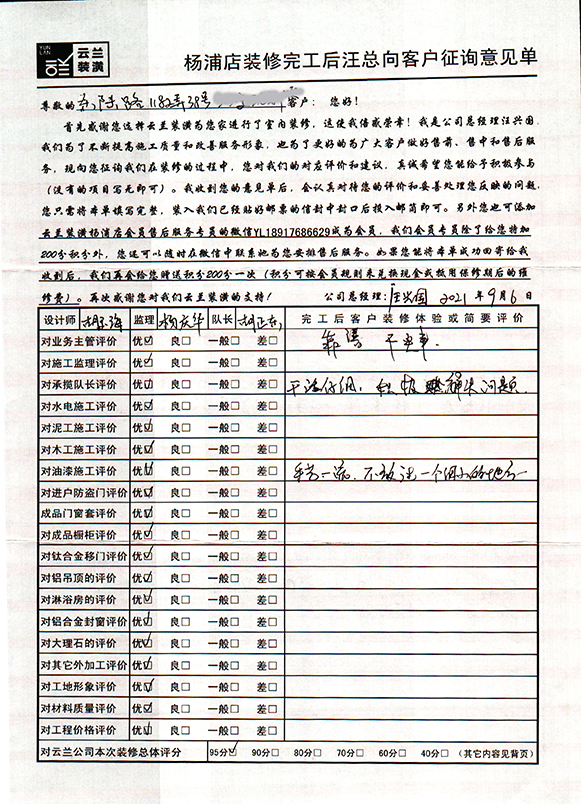 YUN LAN
云兰
装潢
杨浦店装修完工后汪总向客户征询意见单
尊敬的 路1182弄38号 客户： 您好！
首先感谢您选择云兰装潢为您家进行了室内装修，这使我倍感荣幸！我是公司总经理汪兴国，
我们为了不断提高施工质量和改善服务形象，也为了更好的为广大客户做好售前、售中和售后服
务，现向您征询我们在装修的过程中，您对我们的对应评价和建议，真诚希望您能给予积极参与
（没有的项目写无即可）。我收到您的意见单后，会认真对待您的评价和妥善处理您反映的问题，
您只需将本单填写完整，装入我们已经贴好邮票的信封中封口后投入邮筒即可。另外您也可添加
云兰装潢杨浦店会员售后服务专员的微信YL18917686629成为会员，我们会员专员除了给您特加
200分积分外，您还可以随时在微信中联系她为您安排售后服务。如果您能将本单成功回寄给我
收到后，我们再会给您赠送积分200分一次（积分可按会员规则来兑换现金或抵用保修期后的维
修费）。再次感谢您对我们云兰装潢的支持！ 公司总经理：汪兴国 2021年9月6日
设计师 胡海 监理 杨庆华 队长 胡正 完工后客户装修体验或简要评价
对业务主管评价 优☑ 良□ 一般□ 差□ 靠谱
对施工监理评价 优☑ 良□ 一般□ 差□
对承揽队长评价 优☑ 良□ 一般□ 差□ 干活仔细，积极解决问题
对水电施工评价 优☑ 良□ 一般□ 差□
对泥工施工评价 优☑ 良□ 一般□ 差□
对木工施工评价 优☑ 良□ 一般□ 差□
对油漆施工评价 优☑ 良□ 一般□ 差□ 手艺一流，不放过一个细小的地方
对进户防盗门评价 优☑ 良□ 一般□ 差□
成品门窗套评价 优☑ 良□ 一般□ 差□
对成品橱柜评价 优☑ 良□ 一般□ 差□
对钛合金移门评价 优☑ 良□ 一般□ 差□
对铝吊顶的评价 优☑ 良□ 一般□ 差□
对淋浴房的评价 优☑ 良□ 一般□ 差□
对铝合金封窗评价 优☑ 良□ 一般□ 差□
对大理石的评价 优☑ 良□ 一般□ 差□
对其它外加工评价 优☑ 良□ 一般□ 差□
对工地形象评价 优☑ 良□ 一般□ 差□
对材料质量评价 优☑ 良□ 一般□ 差□
对工程价格评价 优☑ 良□ 一般□ 差□
对云兰公司本次装修总体评分 95分☑ 90分□ 80分□ 70分□ 60分□ 40分□ （其它内容见背页）